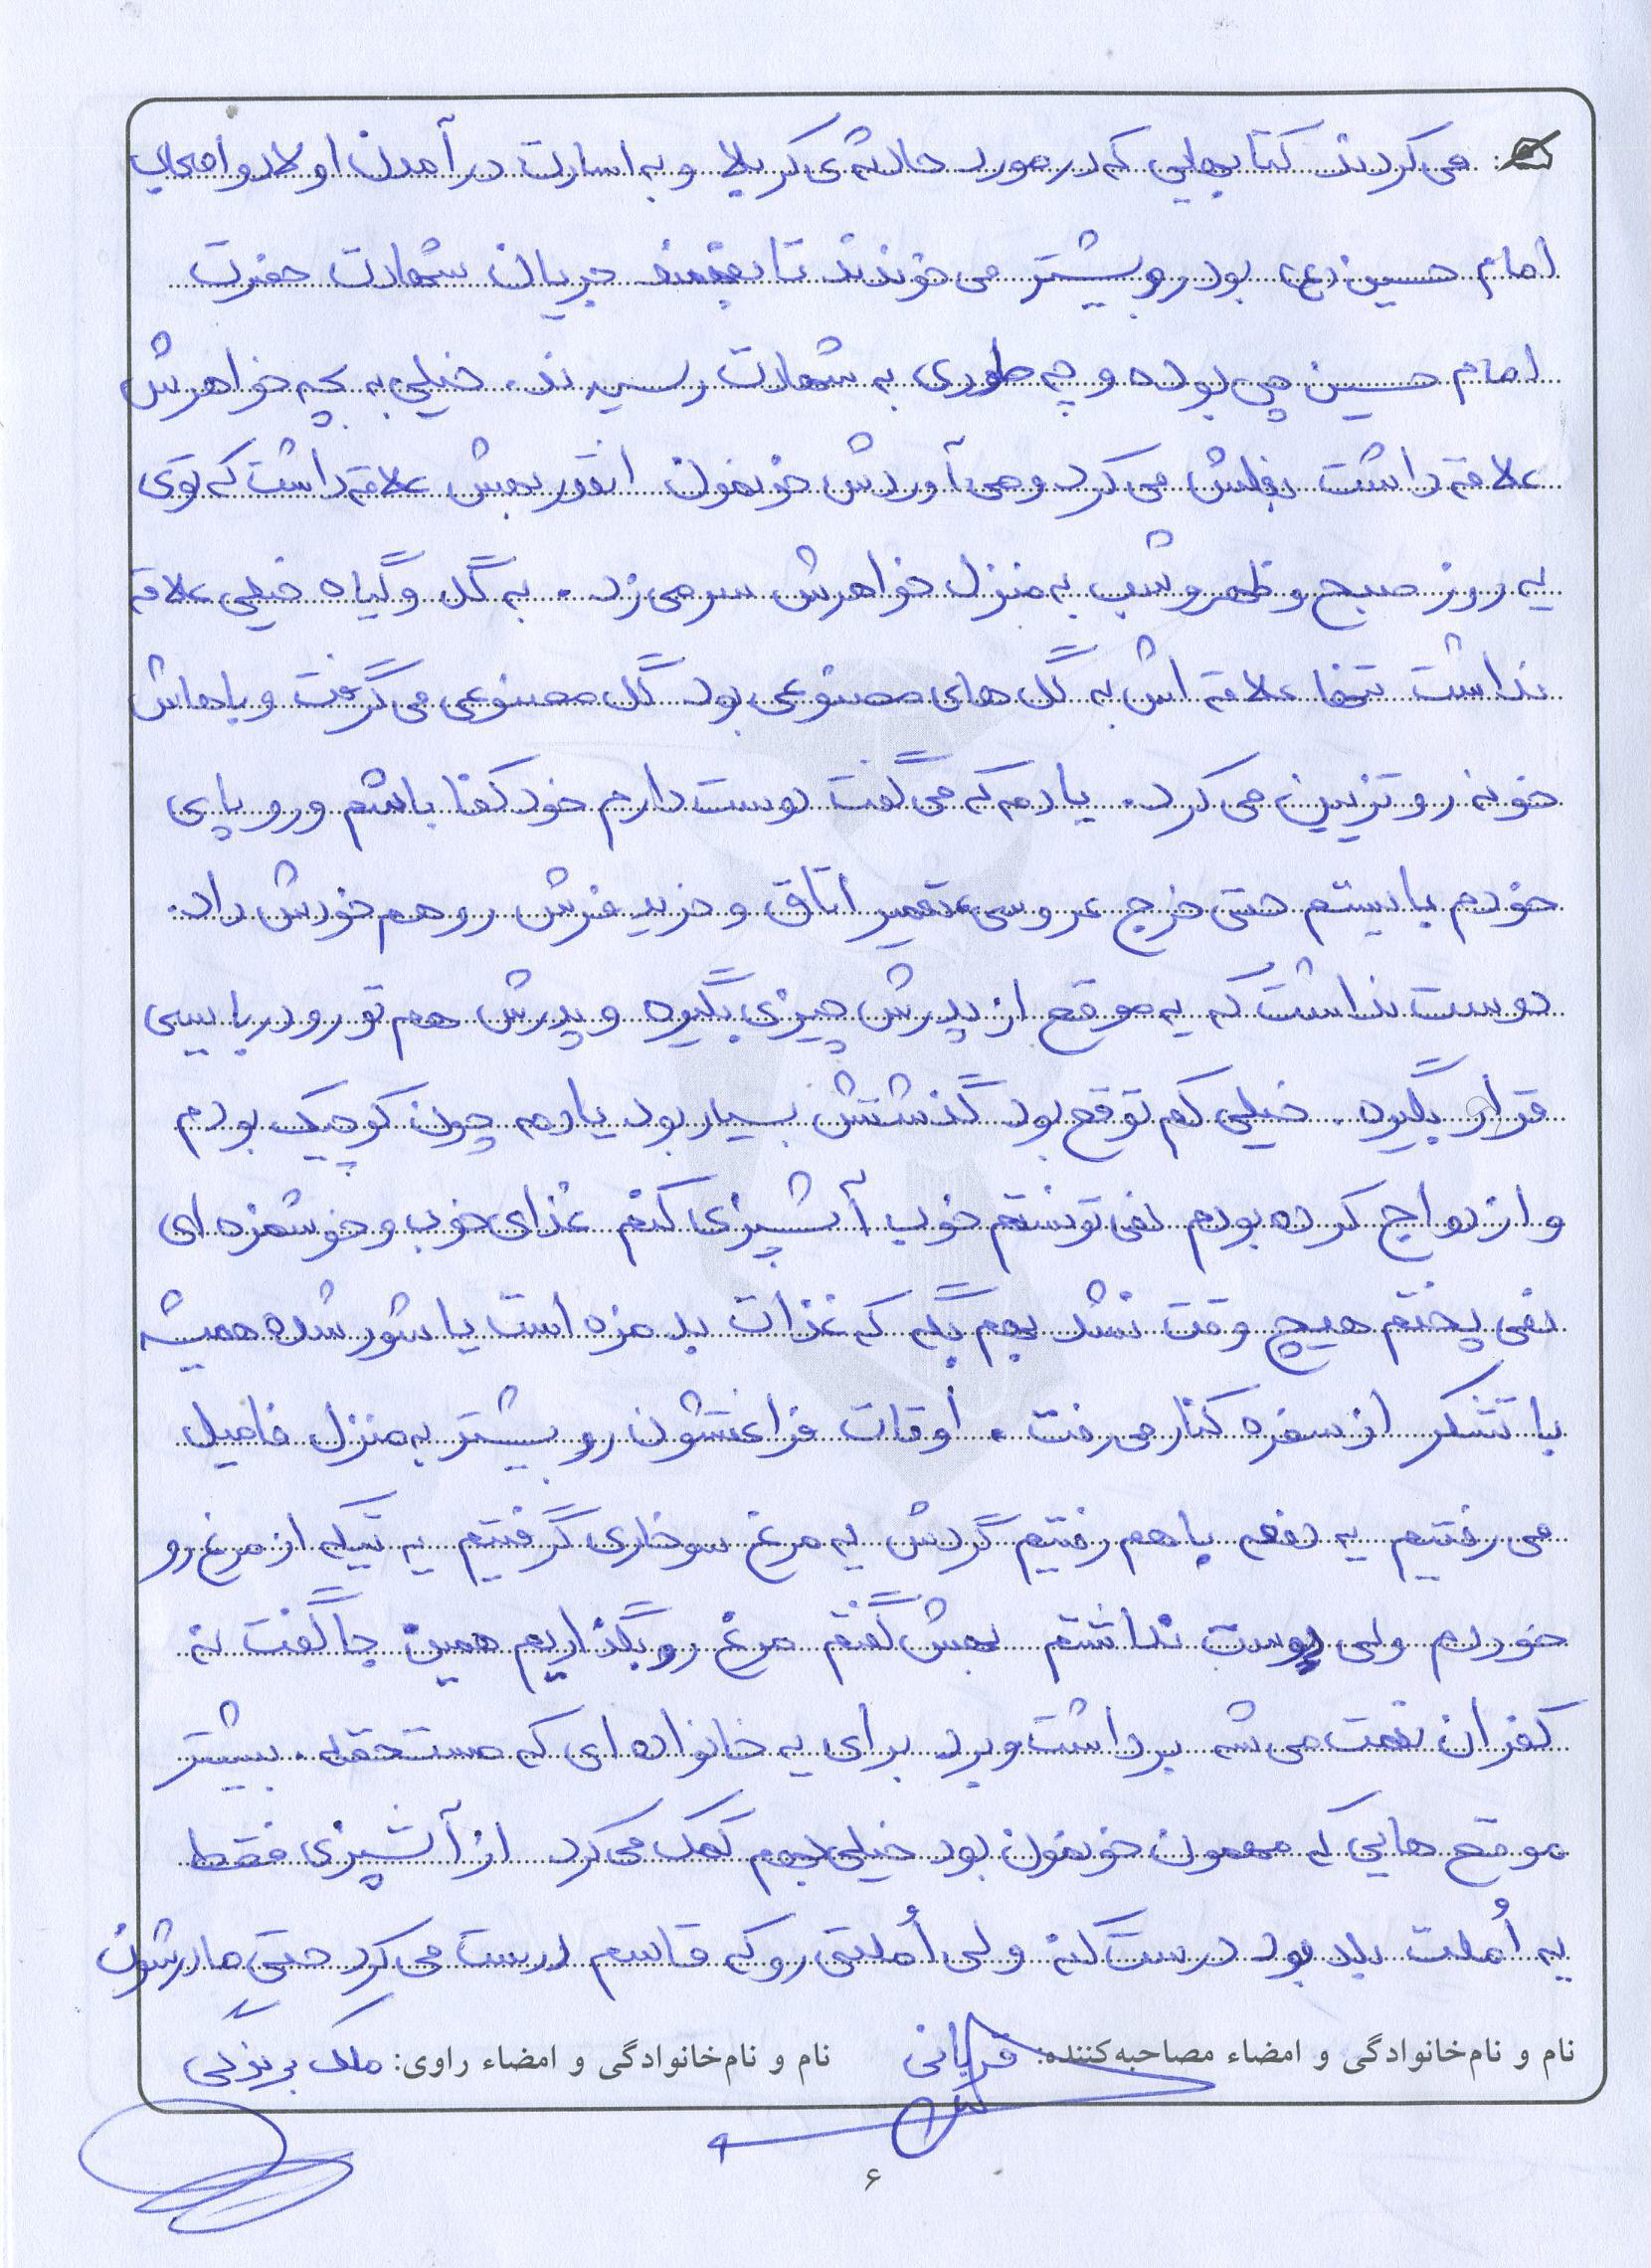 می کردند کتابهایی که در مورد حادثه ی کربلا و به اسارت در آمدن اولاد و اصحاب
امام حسین (ع) بود رو بیشتر می خوندند تا بفهمند جریان شهادت حضرت
امام حسین چی بوده و چه طوری به شهادت رسیدند. خیلی به بچه خواهرش
علاقه داشت بغلش می کرد و می آوردش خونمون انقدر بهش علاقه داشت که توی
یه روز صبح و ظهر و شب به منزل خواهرش سر می زد. به گل و گیاه خیلی علاقه
نداشت تنها علاقه اش به گل های مصنوعی بود گل مصنوعی می گرفت و باهاش
خونه رو تزیین می کرد. یادمه که می گفت دوست دارم خودکفا باشم و رو پای
خودم بایستم حتی خرج عروسی، تعمیر اتاق و خرید فرش رو هم خودش داد.
دوست نداشت که یه موقع از پدرش چیزی بگیره و پدرش هم تو رودربایسی
قرار بگیره. خیلی کم توقع بود گذشتش بسیار بود یادمه چون کوچیک بودم
و ازدواج کرده بودم نمی تونستم خوب آشپزی کنم غذای خوب و خوشمزه ای
نمی پختم هیچ وقت نشد بهم بگه که غذات بد مزه است یا شور شده همیشه
با تشکر از سفره کنار می رفت. اوقات فراغتشون رو بیشتر به منزل فامیل
می رفتیم یه دفعه باهم رفتیم گردش یه مرغ سوخاری گرفتیم یه تیکه از مرغ رو
خوردم ولی دوست نداشتم بهش گفتم مرغ رو بگذاریم همین جا گفت نه
کفران نعمت می شه برداشت و برد برای یه خانواده ای که مستحقه. بیشتر
موقع هایی که مهمون خونمون بود خیلی بهم کمک می کرد از آشپزی فقط
یه اُملت بلد بود درست کنه ولی اُملتی رو که قاسم درست می کرد حتی مادرشون
نام و نام‌خانوادگی و امضاء مصاحبه‌کننده: قربانی
نام و نام‌خانوادگی و امضاء راوی: ملک
۶